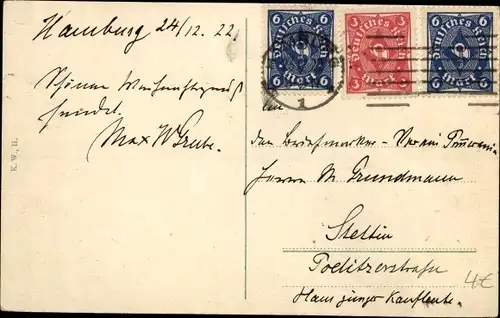 Hamburg 24/12. 22.
Schönen Weihnachtsgruß
sendet
Max W Grube.
K. W., H.
6 Deutsches Reich 6
6 Mark 6
3 Deutsches Reich 3
3 Mark 3
6 Deutsches Reich 6
6 Mark 6
1
An
den Briefmarken-Verein
Herrn M Grundmann
Stettin
Poelitzerstraße
Haus junger Kaufleute.
4€